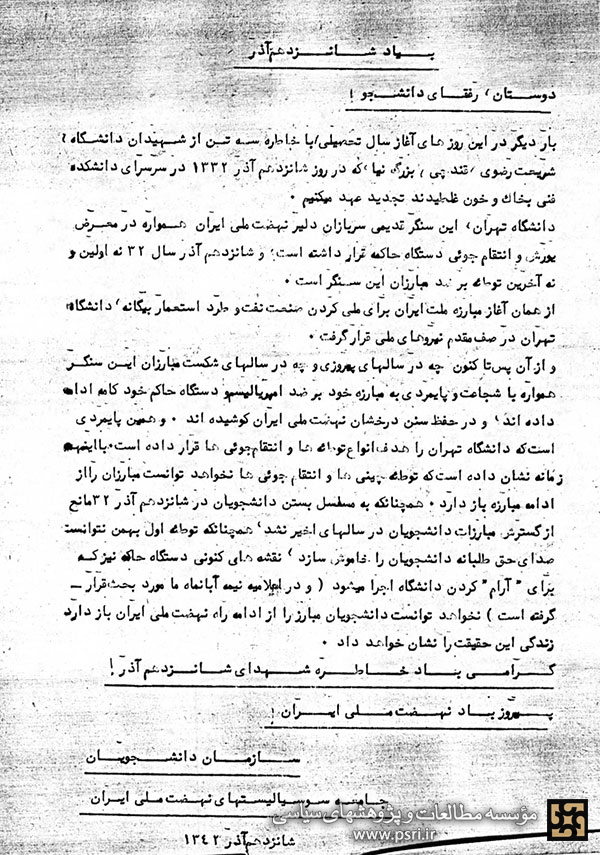 بیاد شانزدهم آذر
دوستان، رفقای دانشجو !
بار دیگر در این روزهای آغاز سال تحصیلی، با خاطره سه تن از شهیدان دانشگاه،
شریعت رضوی، قندچی، بزرگ نیا، که در روز شانزدهم آذر ۱۳۳۲ در سرسرای دانشکده
فنی بخاك و خون غلطیدند تجدید عهد میکنیم ۰
دانشگاه تهران، این سنگر قدیمی سربازان دلیر نهضت ملی ایران همواره در معرض
یورش و انتقام جوئی دستگاه حاکمه قرار داشته است، و شانزدهم آذر سال ۳۲ نه اولین و
نه آخرین توطئه بر ضد مبارزان این سنگر است ۰
از همان آغاز مبارزه ملت ایران برای ملی کردن صنعت نفت و طرد استعمار بیگانه، دانشگاه
تهران در صف مقدم نیروهای ملی قرار گرفت ۰
و از آن پس تا کنون چه در سالهای پیروزی و چه در سالهای شکست مبارزان این سنگر
همواره با شجاعت و پایمردی به مبارزه خود بر ضد امپریالیسم و دستگاه حاکم خود کامه ادامه
داده اند، و در حفظ سنن درخشان نهضت ملی ایران کوشیده اند ۰ و همین پایمردی
است که دانشگاه تهران را هدف انواع توطئه ها و انتقام جوئی ها قرار داده است. با اینهمه
زمانه نشان داده است که توطئه چینی ها و انتقام جوئی ها نخواهد توانست مبارزان را از
ادامه مبارزه باز دارد ۰ همچنانکه به مسلسل بستن دانشجویان در شانزدهم آذر ۳۲ مانع
از گسترش مبارزات دانشجویان در سالهای اخیر نشد، همچنانکه توطئه اول بهمن نتوانست
صدای حق طلبانه دانشجویان را خاموش سازد، نقشه های کنونی دستگاه حاکمه نیز که
برای "آرام" کردن دانشگاه اجرا میشود ( و در اعلامیه نیمه آبانماه ما مورد بحث قرار ـ
گرفته است ) نخواهد توانست دانشجویان مبارز را از ادامه راه نهضت ملی ایران باز دارد
زندگی این حقیقت را نشان خواهد داد ۰
گرامی باد خاطره شهدای شانزدهم آذر !
پیروز باد نهضت ملی ایران !
سازمان دانشجویان
جامعه سوسیالیستهای نهضت ملی ایران
شانزدهم آذر ۱۳۴۲
مؤسسه مطالعات و پژوهشهای سیاسی
www.psri.ir